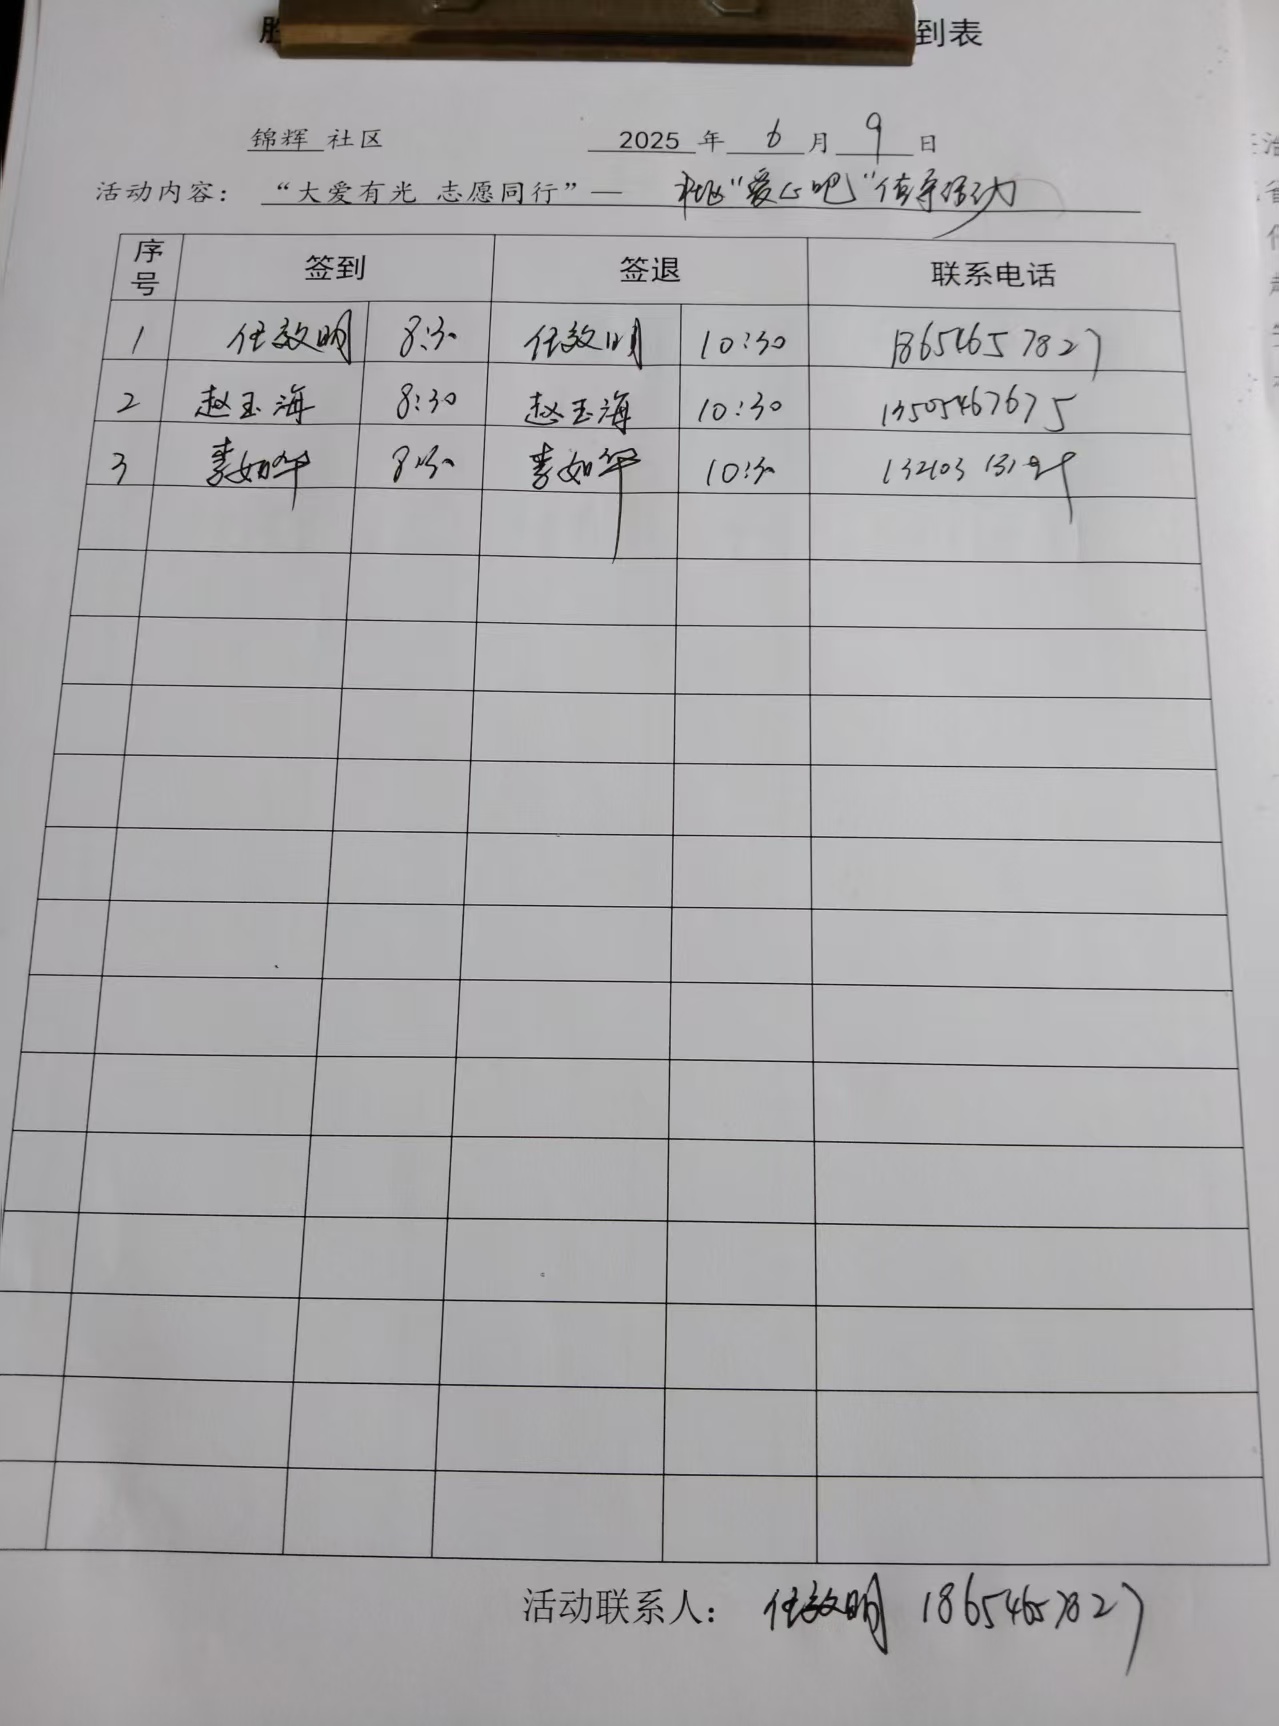 到表
锦辉 社区 2025 年 6 月 9 日
活动内容： “大爱有光 志愿同行”— 社区“爱心吧”值守活动
序号 签到 签退 联系电话
1 任效明 8:30 任效明 10:30 18654657827
2 赵玉海 8:30 赵玉海 10:30 13505467675
3 李如华 8:30 李如华 10:30
活动联系人： 任效明 18654657827